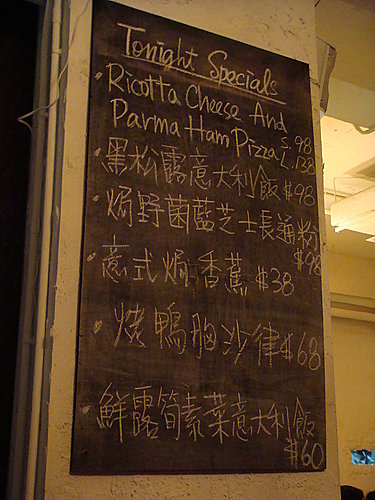 Tonight Specials
• Ricotta Cheese And
Parma Ham Pizza S. 98
L. 138
• 黑松露意大利飯 $98
• 焗野菌藍芝士長通粉
$98
• 意式焗香蕉 $38
• 烧鴨胸沙律 $68
• 鮮露筍素菜意大利飯
$60